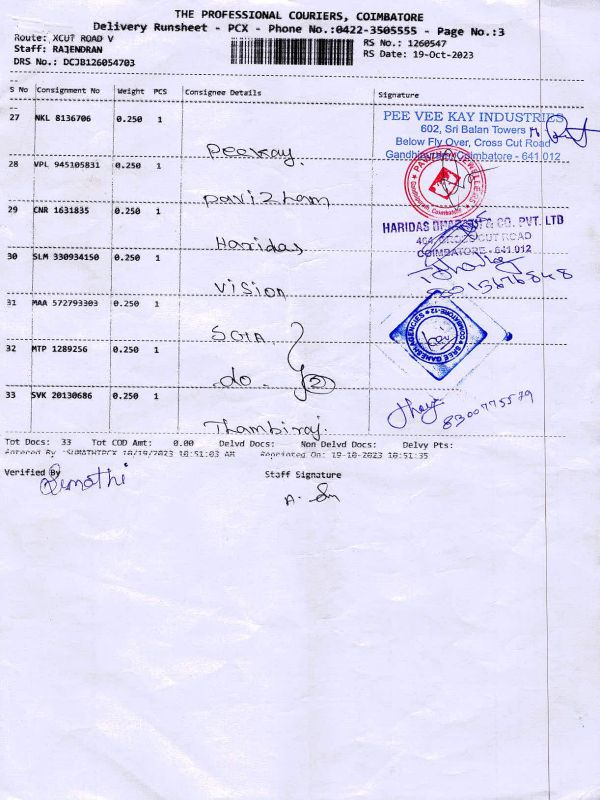 THE PROFESSIONAL COURIERS, COIMBATORE
Delivery Runsheet - PCX - Phone No.:0422-3505555 - Page No.:3
Route: XCUT ROAD V
RS No.: 1260547
Staff: RAJENDRAN
RS Date: 19-Oct-2023
DRS No.: DCJB126054703
S No Consignment No Weight PCS Consignee Details Signature
27 NKL 8136706 0.250 1 Peekay.
PEE VEE KAY INDUSTRIES
602, Sri Balan Towers
Below Fly Over, Cross Cut Road
Gandhipuram, Coimbatore - 641 012
28 VPL 945105831 0.250 1 Pavizham
29 CNR 1631835 0.250 1 Haridas
HARIDAS & CO. PVT. LTD
CROSS CUT ROAD
COIMBATORE - 641 012
30 SLM 330934150 0.250 1 Vision
31 MAA 572793303 0.250 1 SGIA
SREE GANESH AGENCIES COIMBATORE-12
32 MTP 1289256 0.250 1 do. 2
33 SVK 20130686 0.250 1 Thambiraj.
8300775579
Tot Docs: 33 Tot COD Amt: 0.00 Delvd Docs: Non Delvd Docs: Delvy Pts:
Entered By :SUMATHIPCX 10/19/2023 10:51:03 AM Reprinted On: 19-10-2023 10:51:35
Verified By
Staff Signature